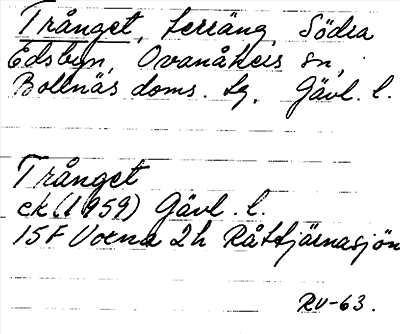 Trånget, terräng, Södra
Edsbyn, Ovanåkers sn,
Bollnäs doms. tg, Gävl. l.
Trånget
ek (1959) Gävl. l.
15F Voxna 2h Råttjärnasjön
RV-63.